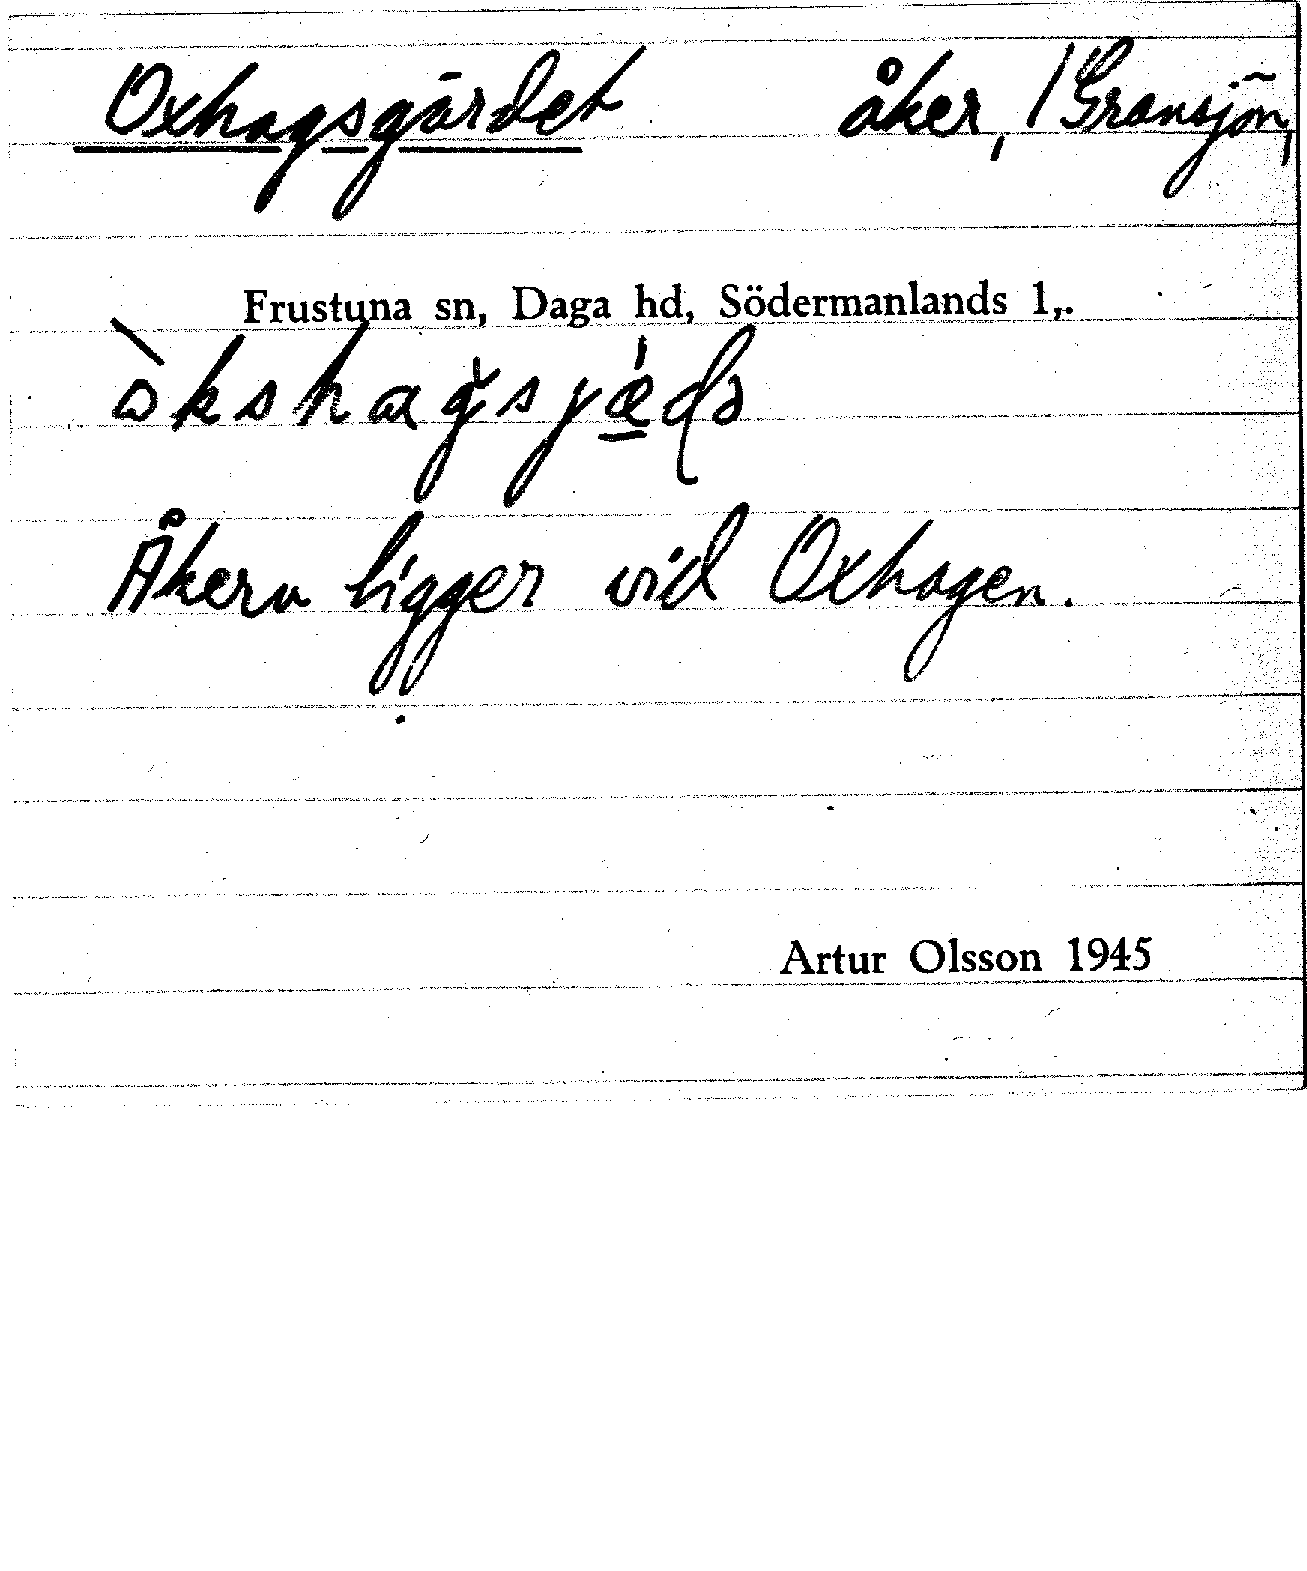 Oxhagsgärdet åker, 1 Gransjön,
Frustuna sn, Daga hd, Södermanlands l,.
Åkern ligger vid Oxhagen.
Artur Olsson 1945